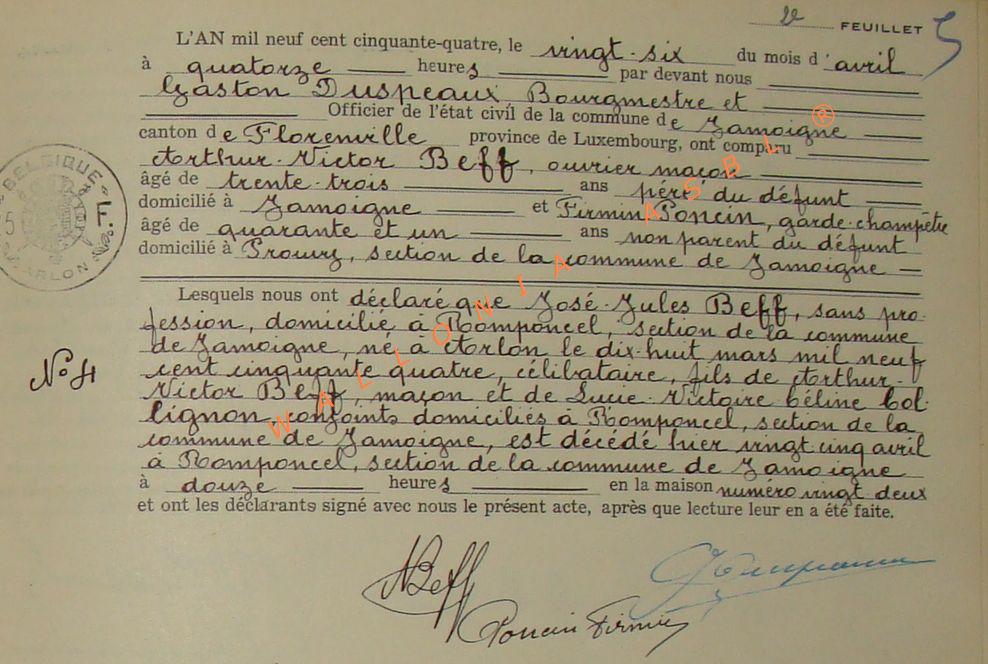 2e FEUILLET 5
L'AN mil neuf cent cinquante-quatre, le vingt-six du mois d'avril
à quatorze heures par devant nous
Gaston Duspeaux Bourgmestre et
Officier de l'état civil de la commune de Jamoigne
canton de Florenville province de Luxembourg, ont comparu
Arthur-Victor Beff, ouvrier maçon
âgé de trente-trois ans père du défunt
domicilié à Jamoigne et Firmin Poncin, garde-champêtre
âgé de quarante et un ans non parent du défunt
domicilié à Prouvy, section de la commune de Jamoigne
Lesquels nous ont déclaré que José-Jules Beff, sans pro-
fession, domicilié à Romponcel, section de la commune
de Jamoigne, né à Arlon le dix-huit mars mil neuf
cent cinquante quatre, célibataire, fils de Arthur-
Victor Beff, maçon et de Lucie-Victoire Céline Col-
lignon conjoints domiciliés à Romponcel, section de la
commune de Jamoigne, est décédé hier vingt cinq avril
à Romponcel, section de la commune de Jamoigne
à douze heures en la maison numéro vingt deux
et ont les déclarants signé avec nous le présent acte, après que lecture leur en a été faite.
N° 4
ABeff
Poncin Firmin
BELGIQUE
ARLON
WALLONIA ASBL ®